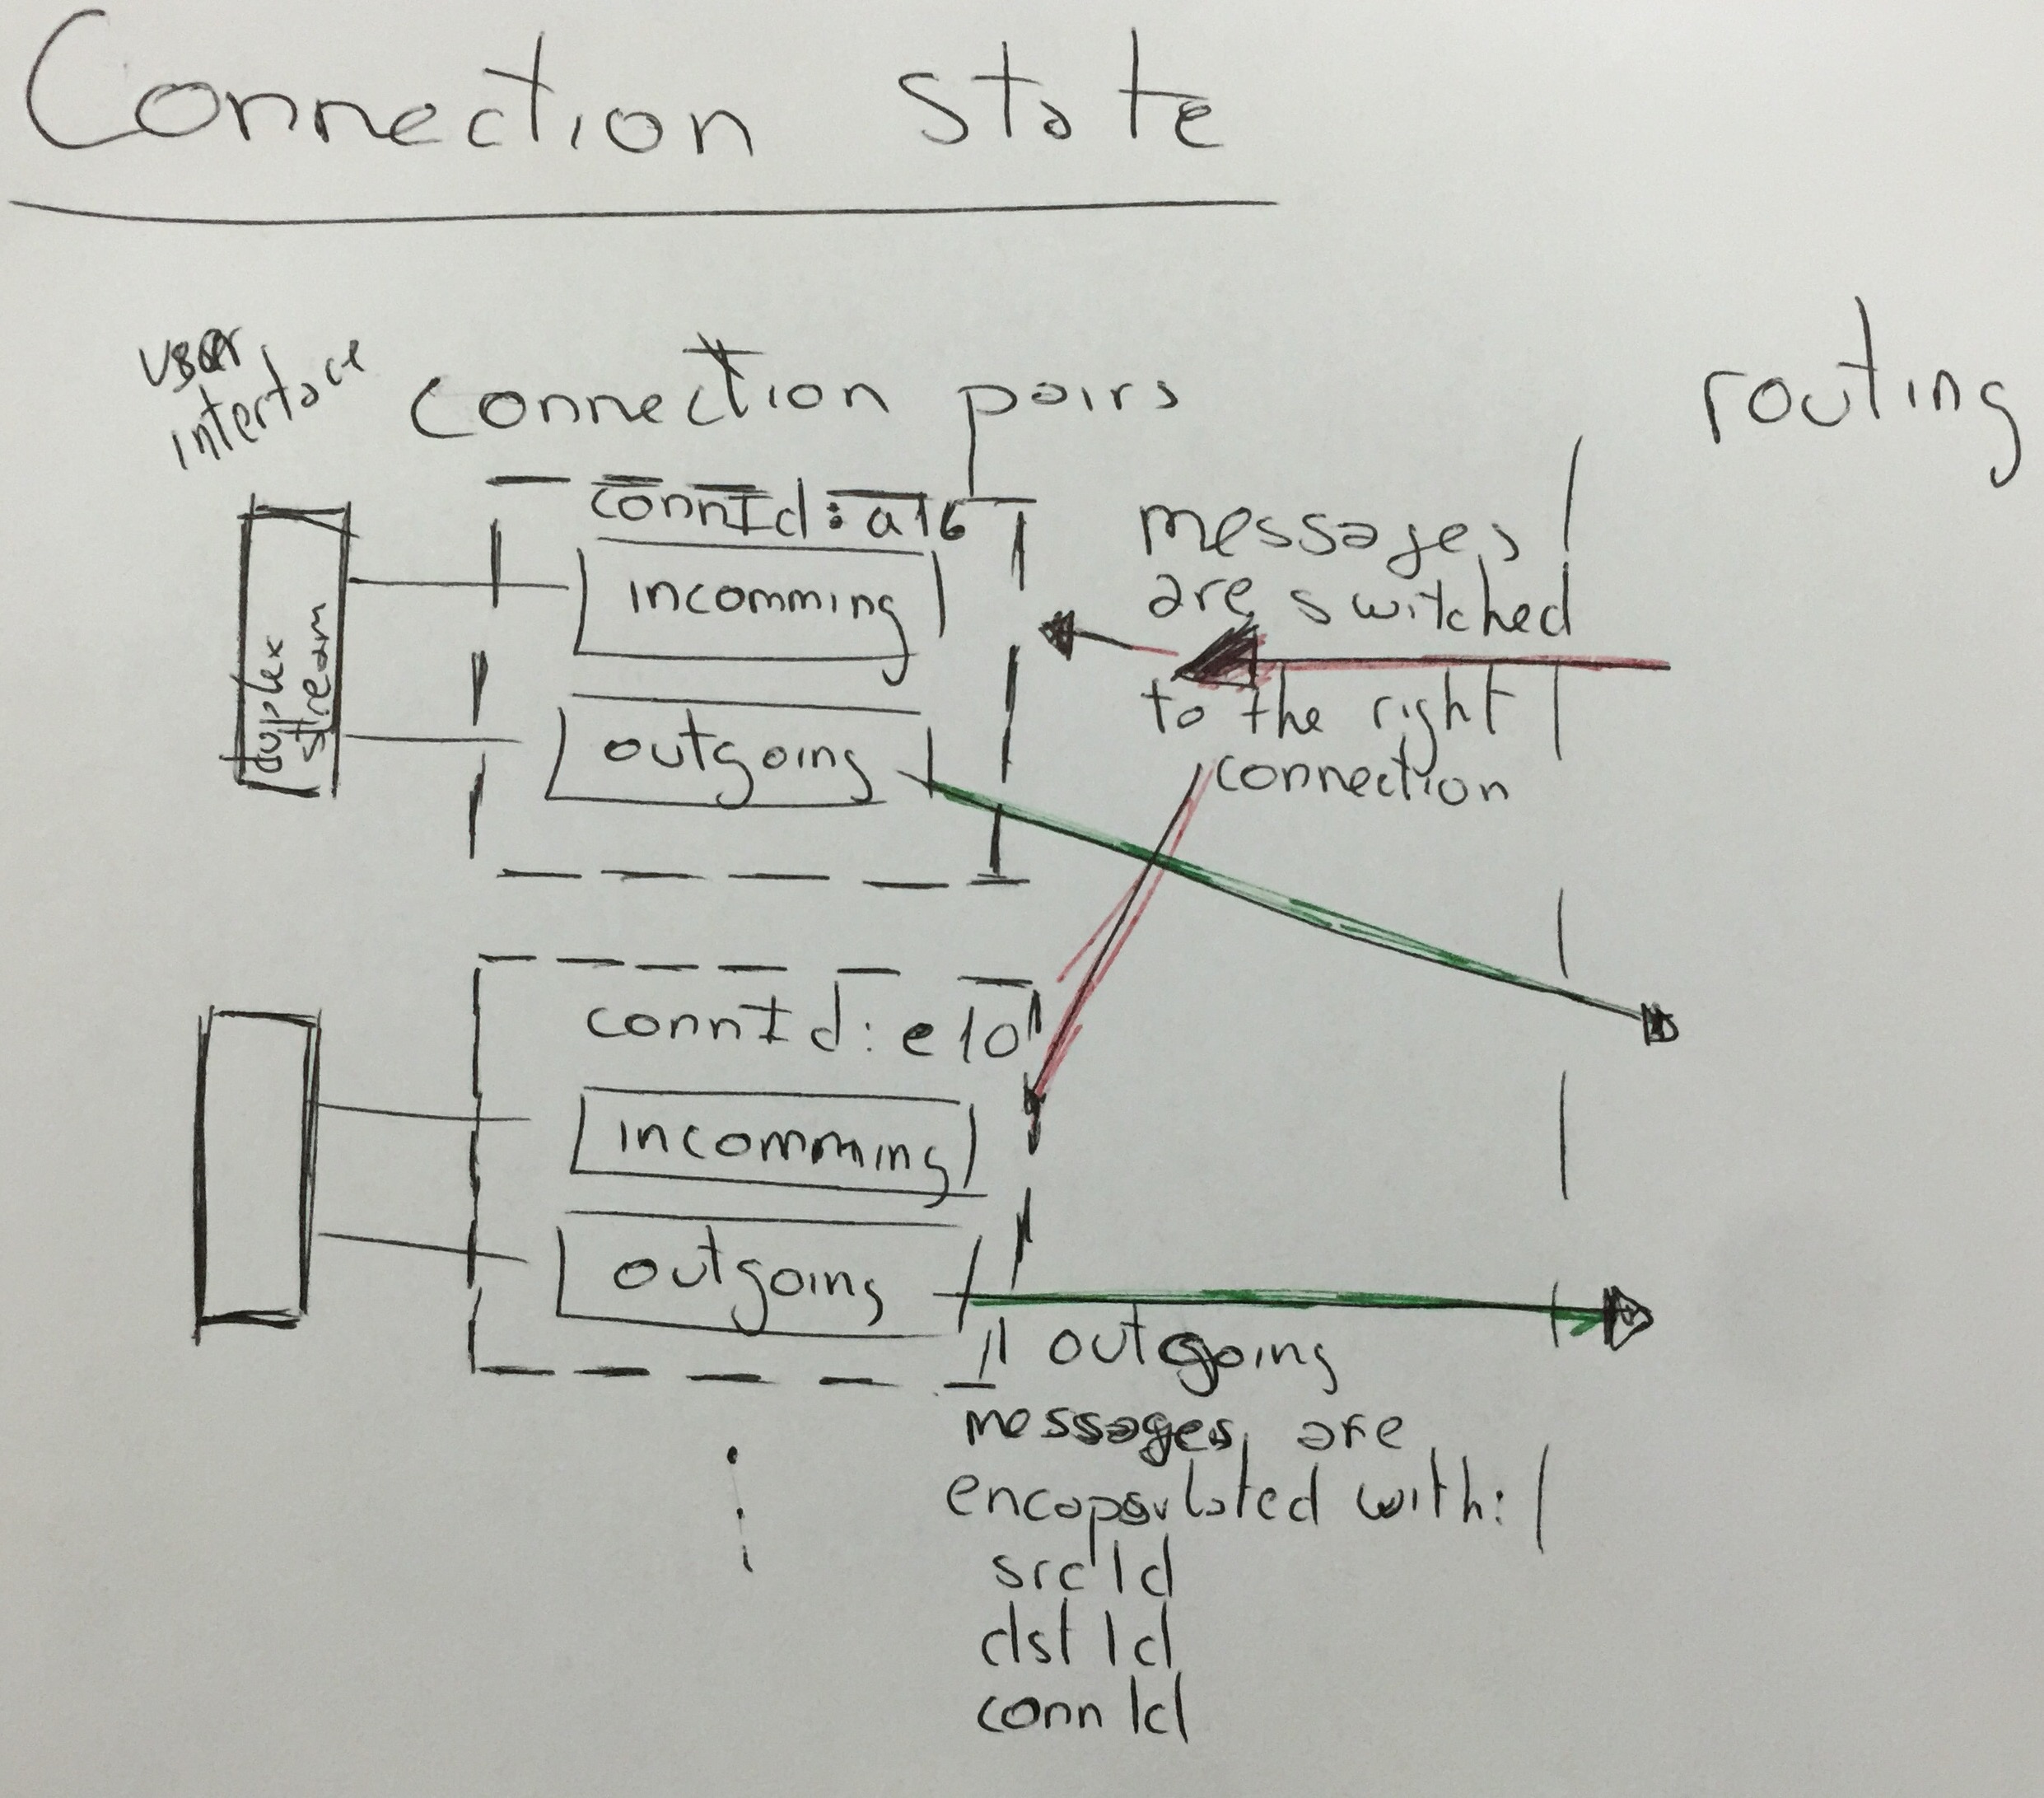 Connection state
user
interface
connection pairs
routing
connId: a16
incomming
outgoing
duplex
stream
messages
are switched
to the right
connection
connId: e10
incomming
outgoing
outgoing
messages are
encapsulated with:
srcId
dstId
connId